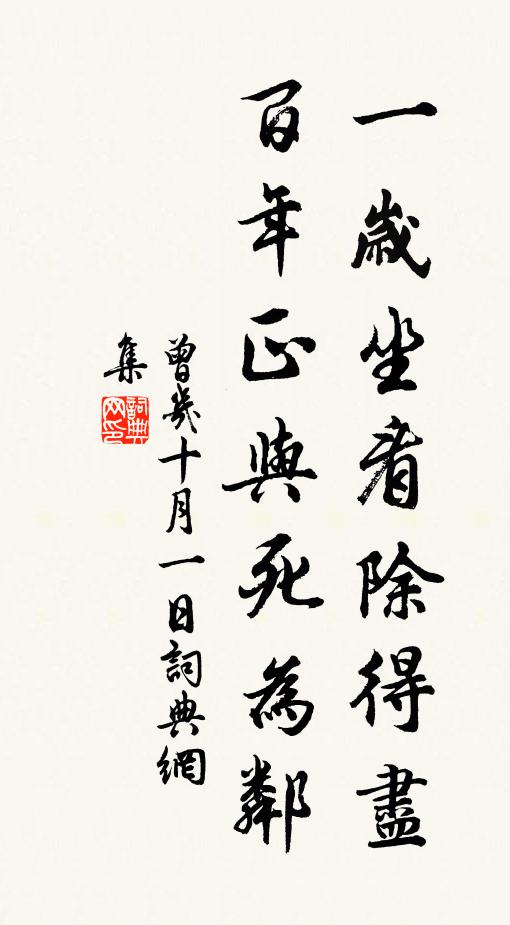 一歲坐看除得盡
百年正與死為鄰
曾幾十月一日詞典網
集
詞典網印